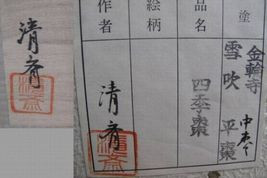 塗
金輪寺
雪吹 平棗
中棗
品名
四季棗
絵柄
作者
清斎
清斎